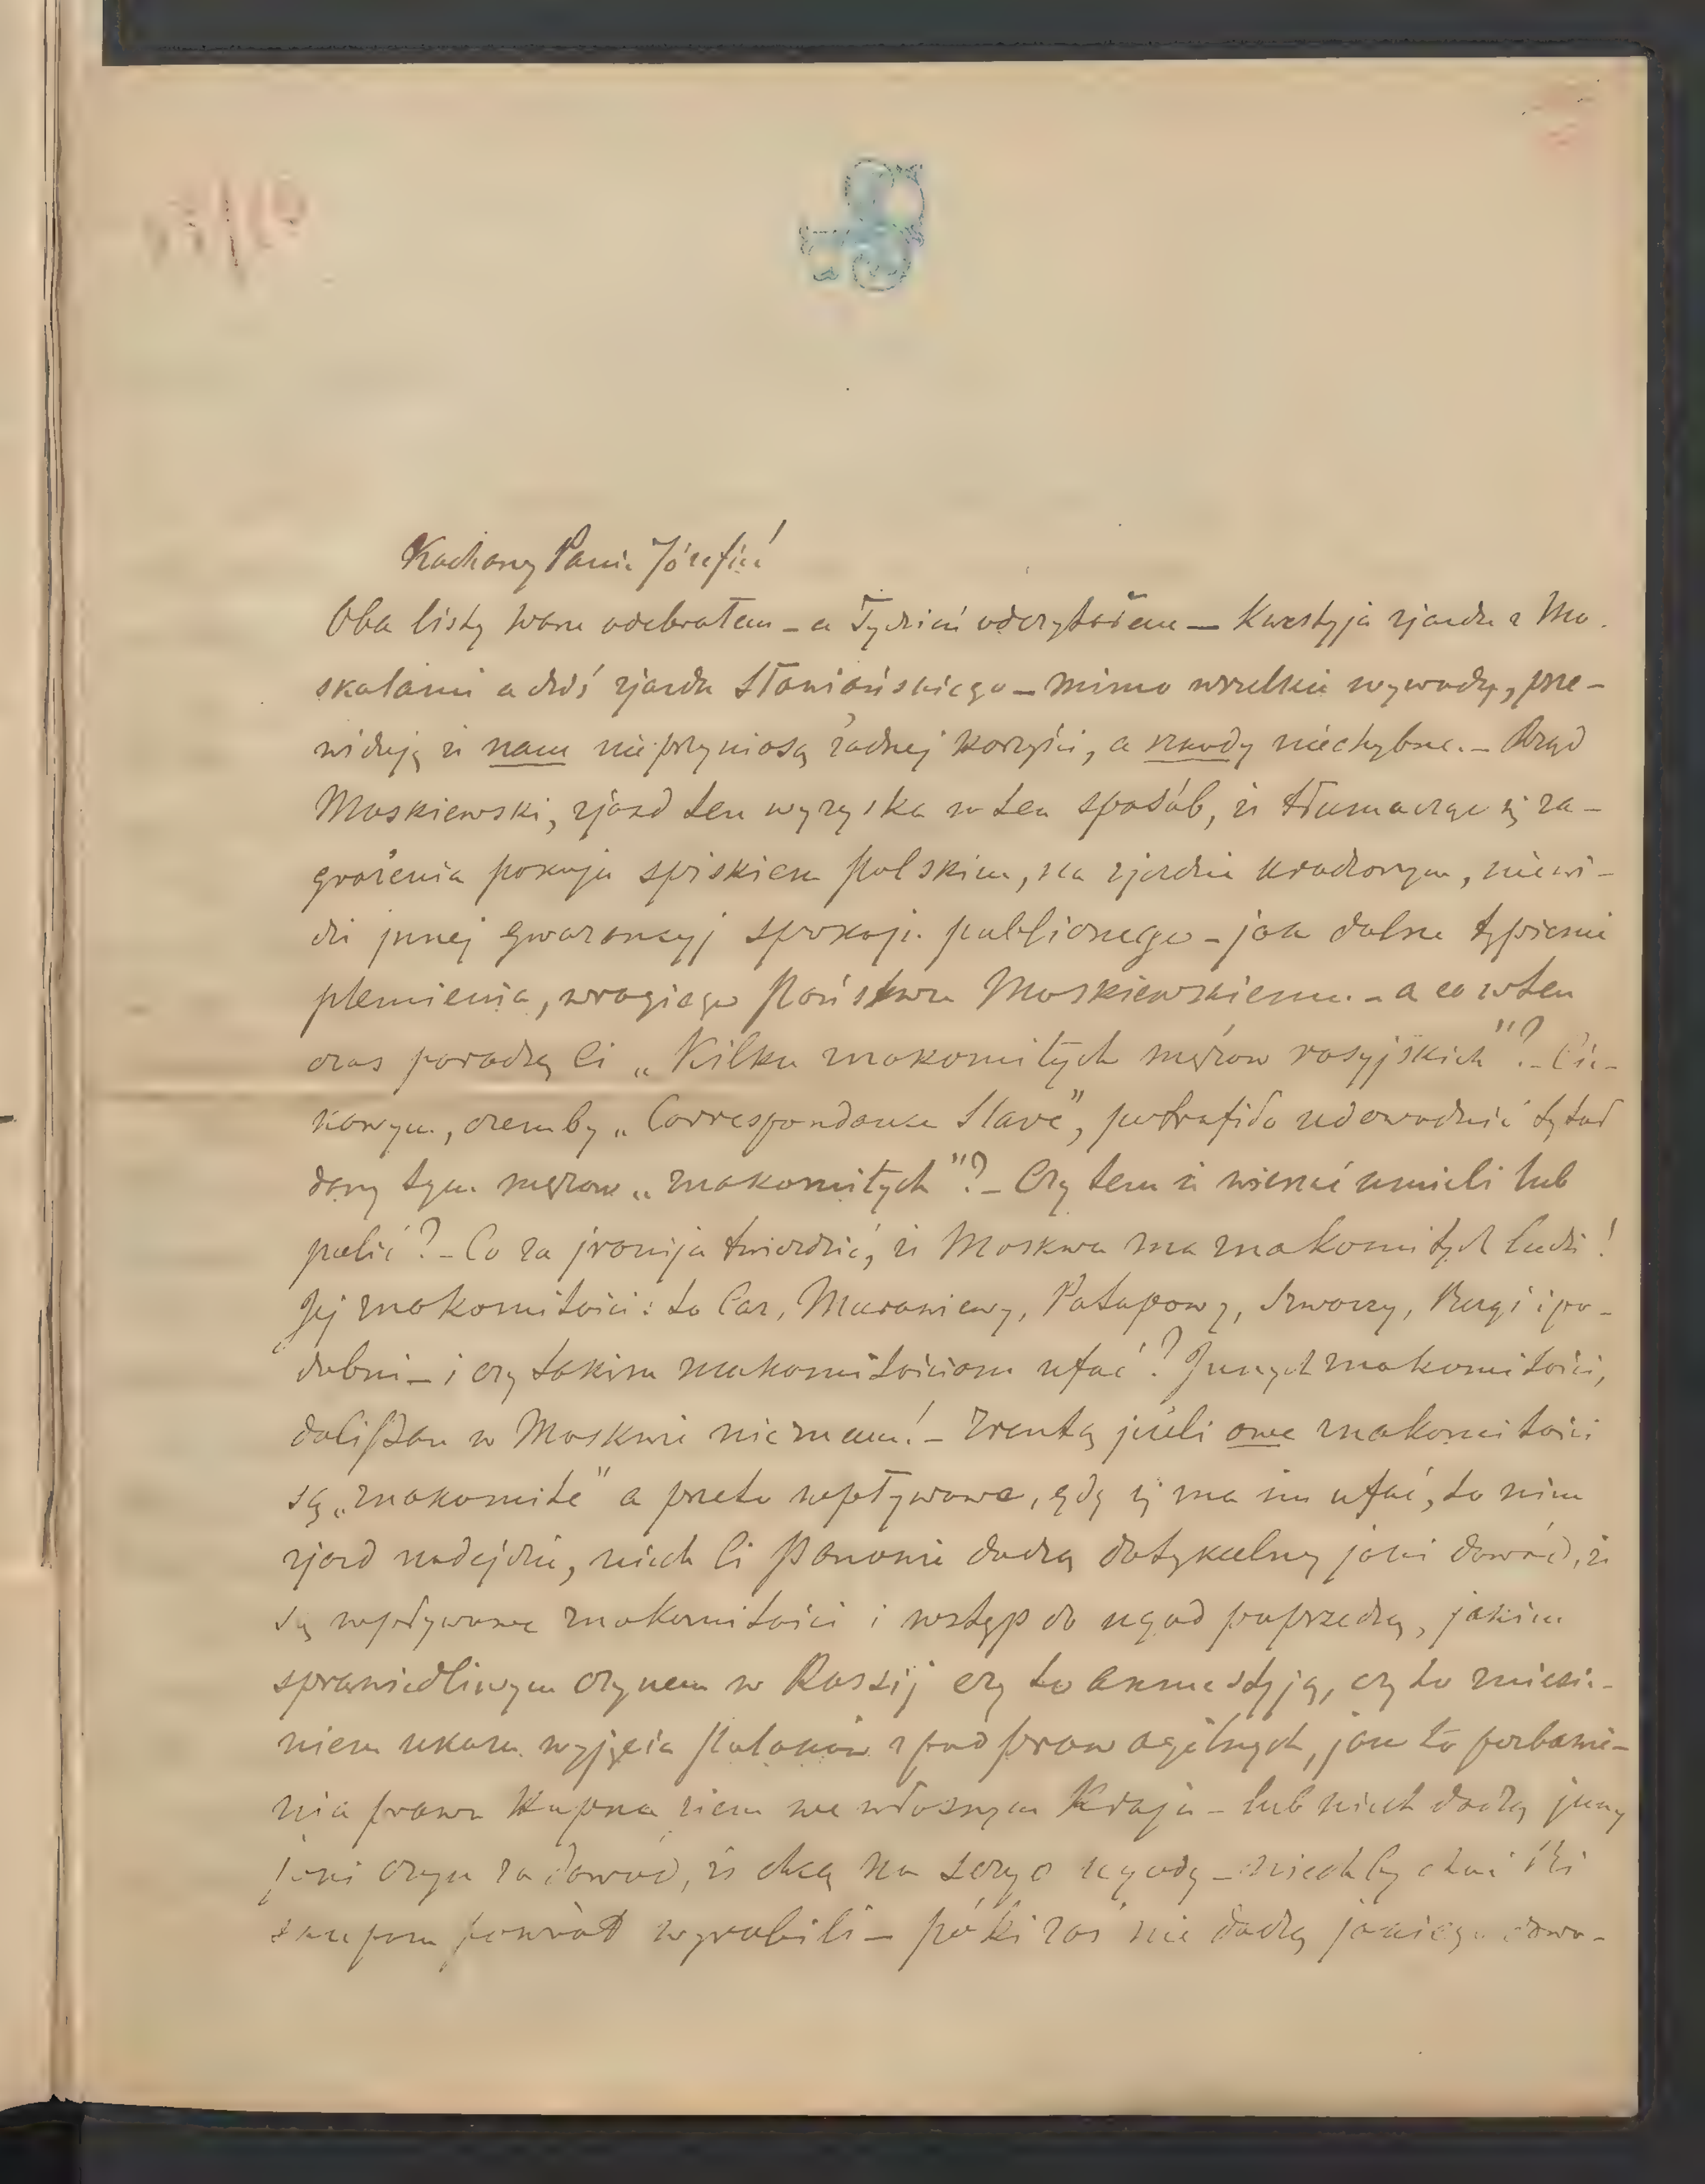 Kochany Panie Józefie!
Oba listy Wasze odebrałem – a Tydzień odczytałem – Kwestyja zjazdu z Mo-
skalami a dziś zjazdu Słowiańskiego – mimo wszelkie wywody, prze-
widuję iż nam nie przyniosą żadnej korzyści, a szkody niechybne. – Rząd
Moskiewski, zjazd ten wyzyska w ten sposób, iż tłumacząc się za-
grożenia pokoju spiskiem polskim, na zjeździe uradzonym, niewi-
dzi jnnej gwarancyj spokoju publicznego – jak dalsze tępienie
plemienia, wrogiego Państwu Moskiewskiemu. – a co wten
czas poradzą ci „Kilku znakomitych mężów rosyjskich"? – Cie-
kawym, czemby „Correspondance Slave", potrafiła udowodnić tytuł
dany tym mężom „znakomitych"? – Czy tem iż wieszać umieli lub
palić? – Co za jronija twierdzić, iż Moskwa ma znakomitych ludzi!
Jej znakomitości: to Car, Murawiewy, Potapowy, Szwarcy, Bergi i po-
dobni – i czy takim znakomitościom ufać? Jnnych znakomitości,
dalipan w Moskwie nieznam! – Zresztą jeżeli owe znakomitości
są „znakomite" a przeto wpływowe, gdy się ma im ufać, to nim
zjazd nadejdzie, niech ci Panowie dadzą dotykalny jaki dowód, iż
są wpływowe znakomitości i wstęp do ugod poprzedzą, jakim
sprawiedliwym czynem w Rossij czy to amnestyją, czy to zniesie-
niem ukazu wyjęcia Polaków z pod praw ogólnych, jak to pozbawie-
nia prawa Kupna ziem we własnym Kraju – lub niech dadzą jnny
jaki czyn za dowód, iż chcą na seryo ugody – niechby choć
powrót wyrobili – póki zaś nie dadzą jakiego dowo-